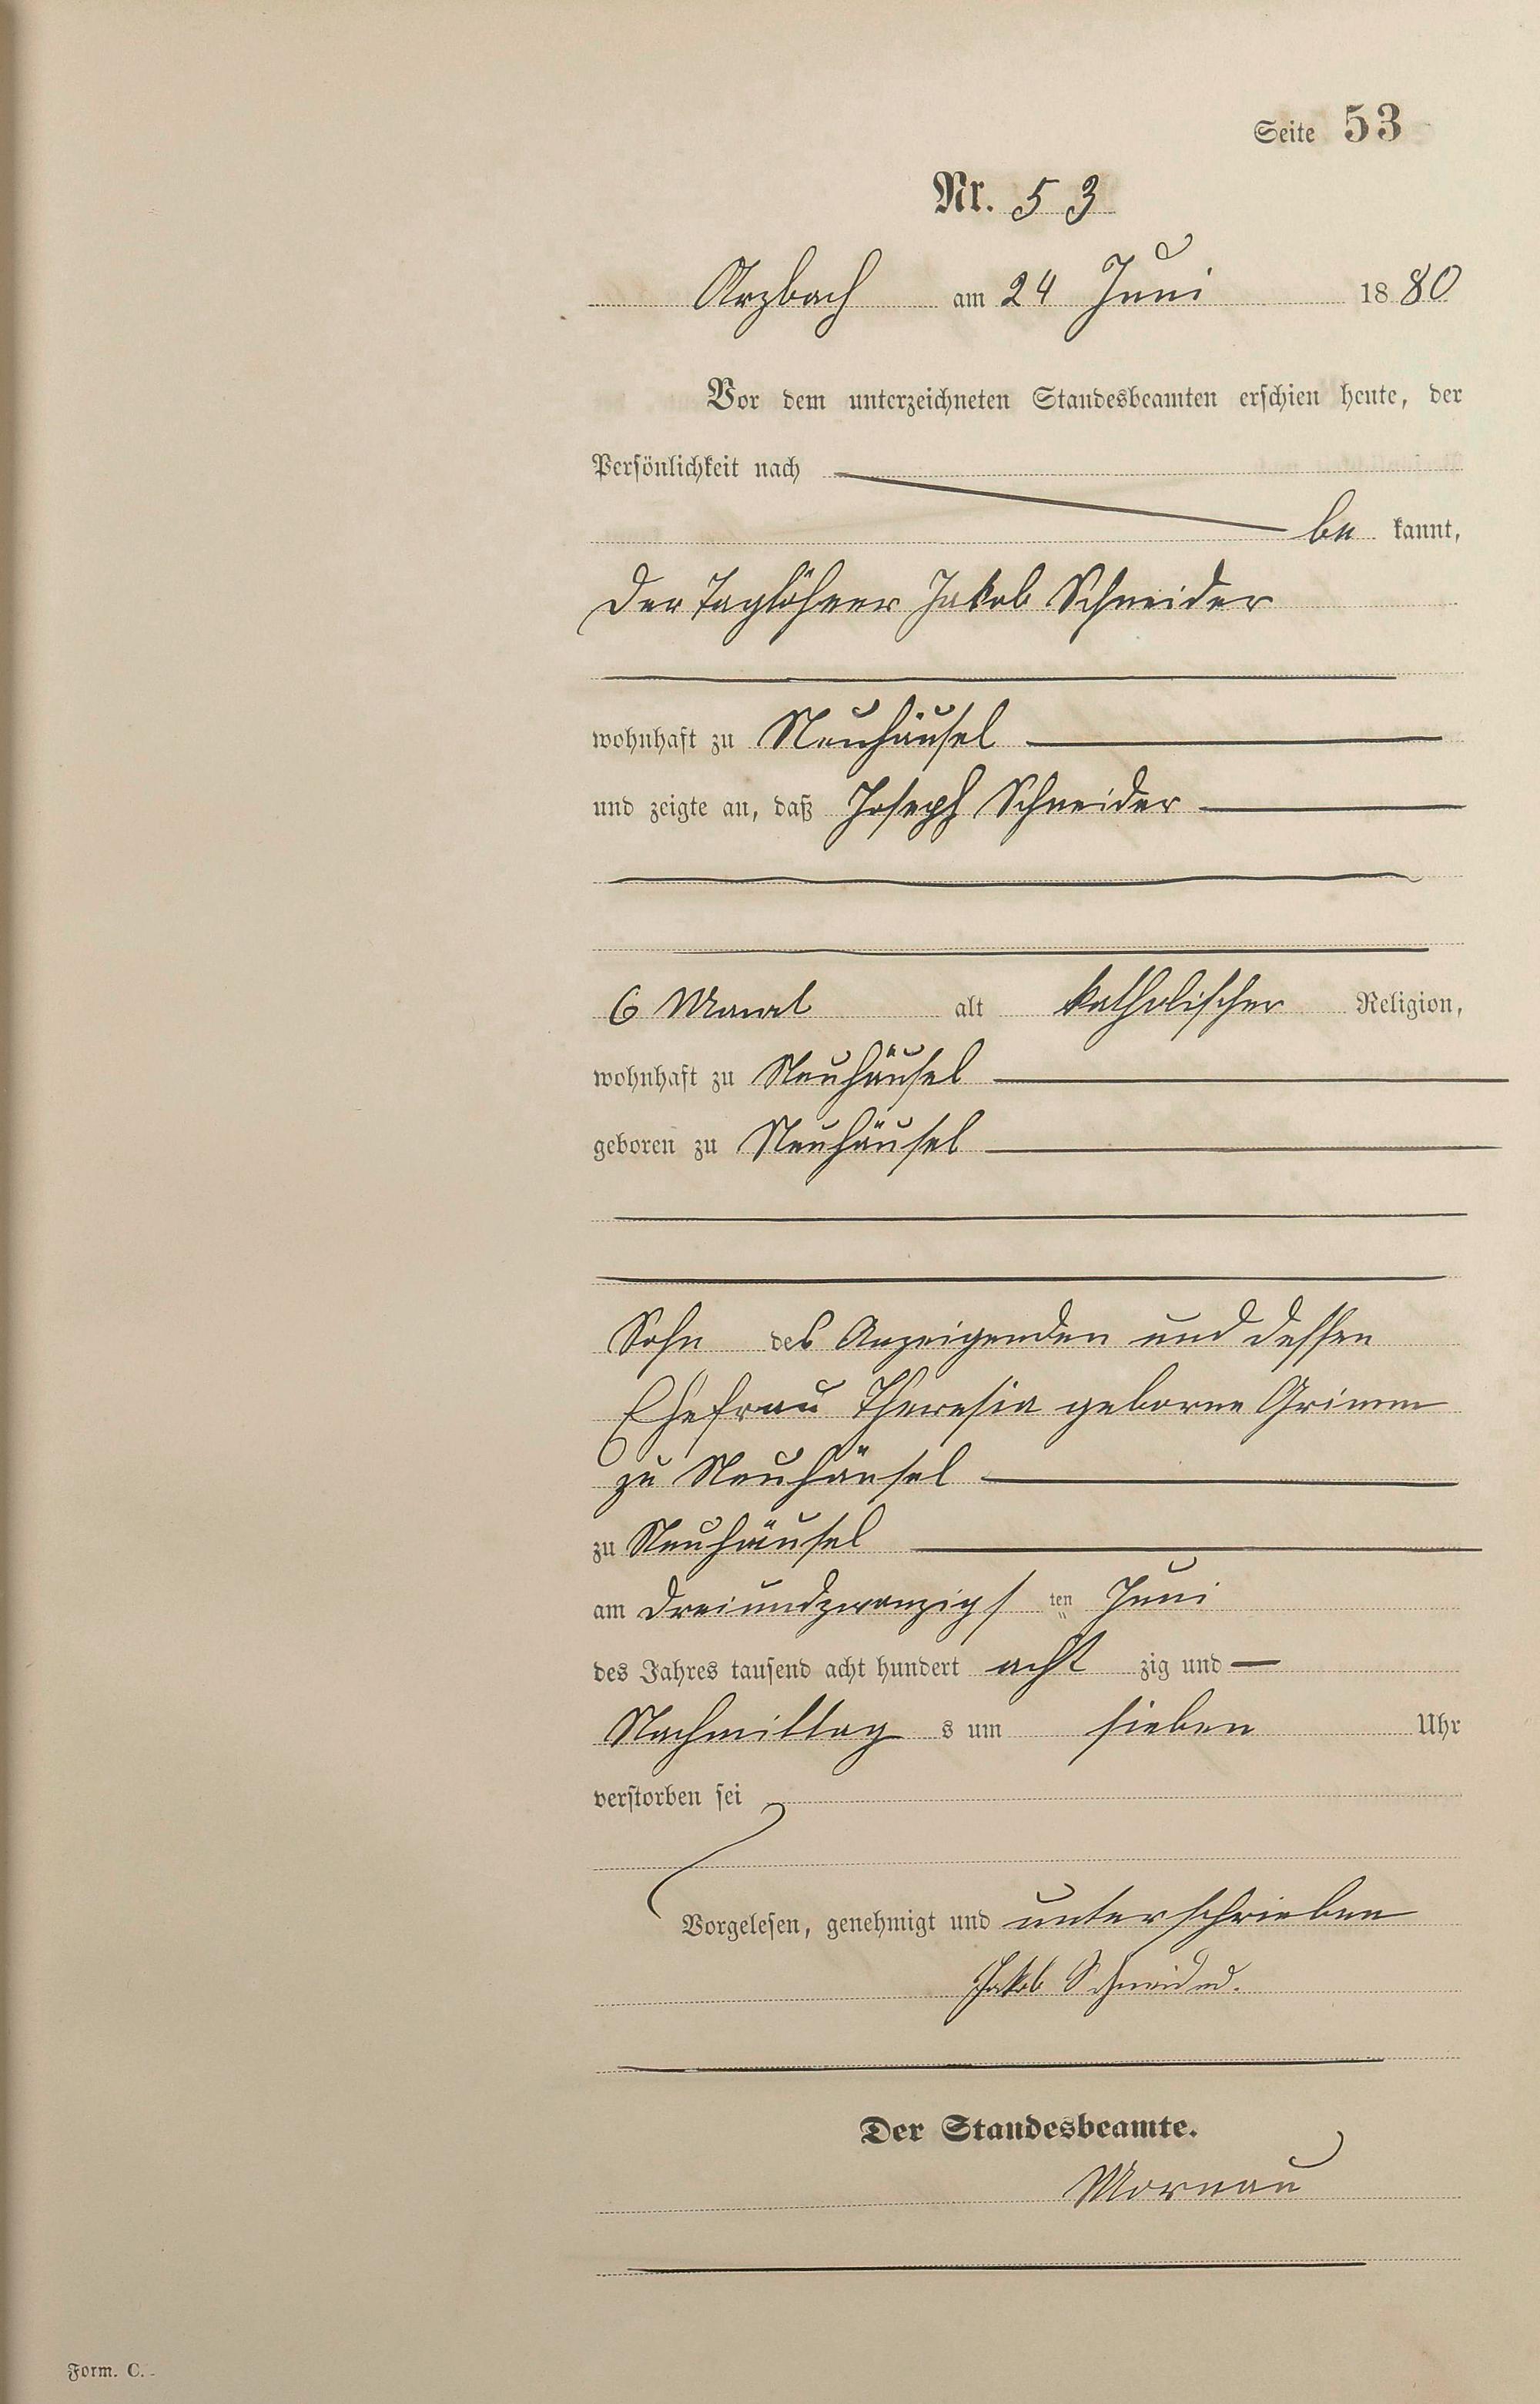 Seite 53
Nr. 53
Arzbach am 24 Juni 1880
Vor dem unterzeichneten Standesbeamten erschien heute, der
Persönlichkeit nach
be kannt,
der Taglöhner Jakob Schneider
wohnhaft zu Neuhäusel
und zeigte an, daß Joseph Schneider
6 Monat alt katholischer Religion,
wohnhaft zu Neuhäusel
geboren zu Neuhäusel
Sohn des Anzeigenden und dessen
Ehefrau Theresia geborne Grimm
zu Neuhäusel
zu Neuhäusel
am dreiundzwanzigs ten Juni
des Jahres tausend acht hundert acht zig und
Nachmittag s um sieben Uhr
verstorben sei
Vorgelesen, genehmigt und unterschrieben
Jakob Schneider.
Der Standesbeamte.
Mornau
Form. C.